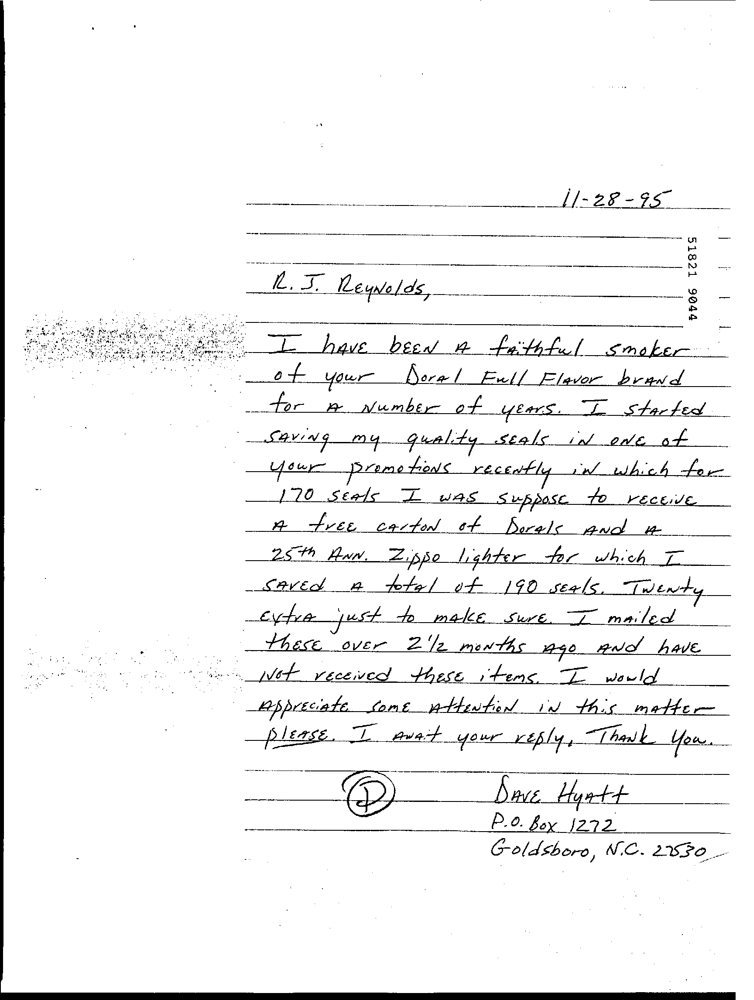 11-28-95
51821 9044
R. J. Reynolds,
I have been a faithful smoker
of your Doral Full Flavor brand
for a number of years. I started
saving my quality seals in one of
your promotions recently in which for
170 seals I was suppose to receive
a free carton of Dorals and a
25th Ann. Zippo lighter for which I
saved a total of 190 seals. Twenty
extra just to make sure. I mailed
these over 2 1/2 months ago and have
not received these items. I would
appreciate some attention in this matter
please. I await your reply, Thank You.
D
Dave Hyatt
P.O. Box 1272
Goldsboro, N.C. 27530